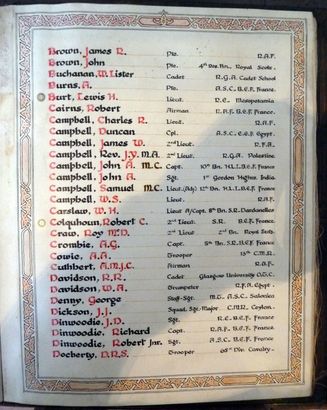 Brown, James R. Pte. R.A.F.
Brown, John Pte. 4th Res. Bn. Royal Scots.
Buchanan, W. Lister Cadet R.G.A. Cadet School
Burns, A. Pte. A.S.C. B.E.F. France.
Burt, Lewis H. Lieut. R.E. Mesopotamia
Cairns, Robert Airman R.A.F. B.E.F. France.
Campbell, Charles R. Lieut. R.A.F.
Campbell, Duncan Cpl. A.S.C. E.E.F. Egypt.
Campbell, James W. 2nd Lieut. R.F.A.
Campbell, Rev. J.Y. M.A. 2nd Lieut. R.G.A. Palestine
Campbell, John A. M.C. Capt. 10th Bn. H.L.I. B.E.F. France
Campbell, John A. Sgt. 1st Gordon Highrs. India
Campbell, Samuel M.C. Lieut. (Adj) 12th Bn. H.L.I. B.E.F. France
Campbell, W.S. Lieut. R.A.F.
Carslaw, W.H. Lieut A/Capt. 8th Bn. S.R. Dardanelles
Colquhoun, Robert C. 2nd Lieut. S.R. B.E.F. France
Craw, Roy M.D. 2nd Lieut 2nd Bn. Royal Scots.
Crombie, A.G. Capt. 5th Bn. S.R. B.E.F. France
Cowie, A.A. Trooper 13th C.M.R.
Cuthbert, A.M.J.C. Airman R.A.F.
Davidson, R.R. Cadet Glasgow University O.T.C.
Davidson, W.A. Trumpeter R.F.A. Egypt.
Denny, George Staff-Sgt. M.T. A.S.C. Salonica
Dickson, J.J. Squad. Sgt. Major C.M.R. Ceylon.
Dinwoodie, J.D. Sgt. R.E. B.E.F. France
Dinwoodie, Richard Capt. R.A.F. B.E.F. France
Dinwoodie, Robert Jnr. Sgt. A.S.C. B.E.F. France
Docherty, D.R.S. Trooper Div. Cavalry.